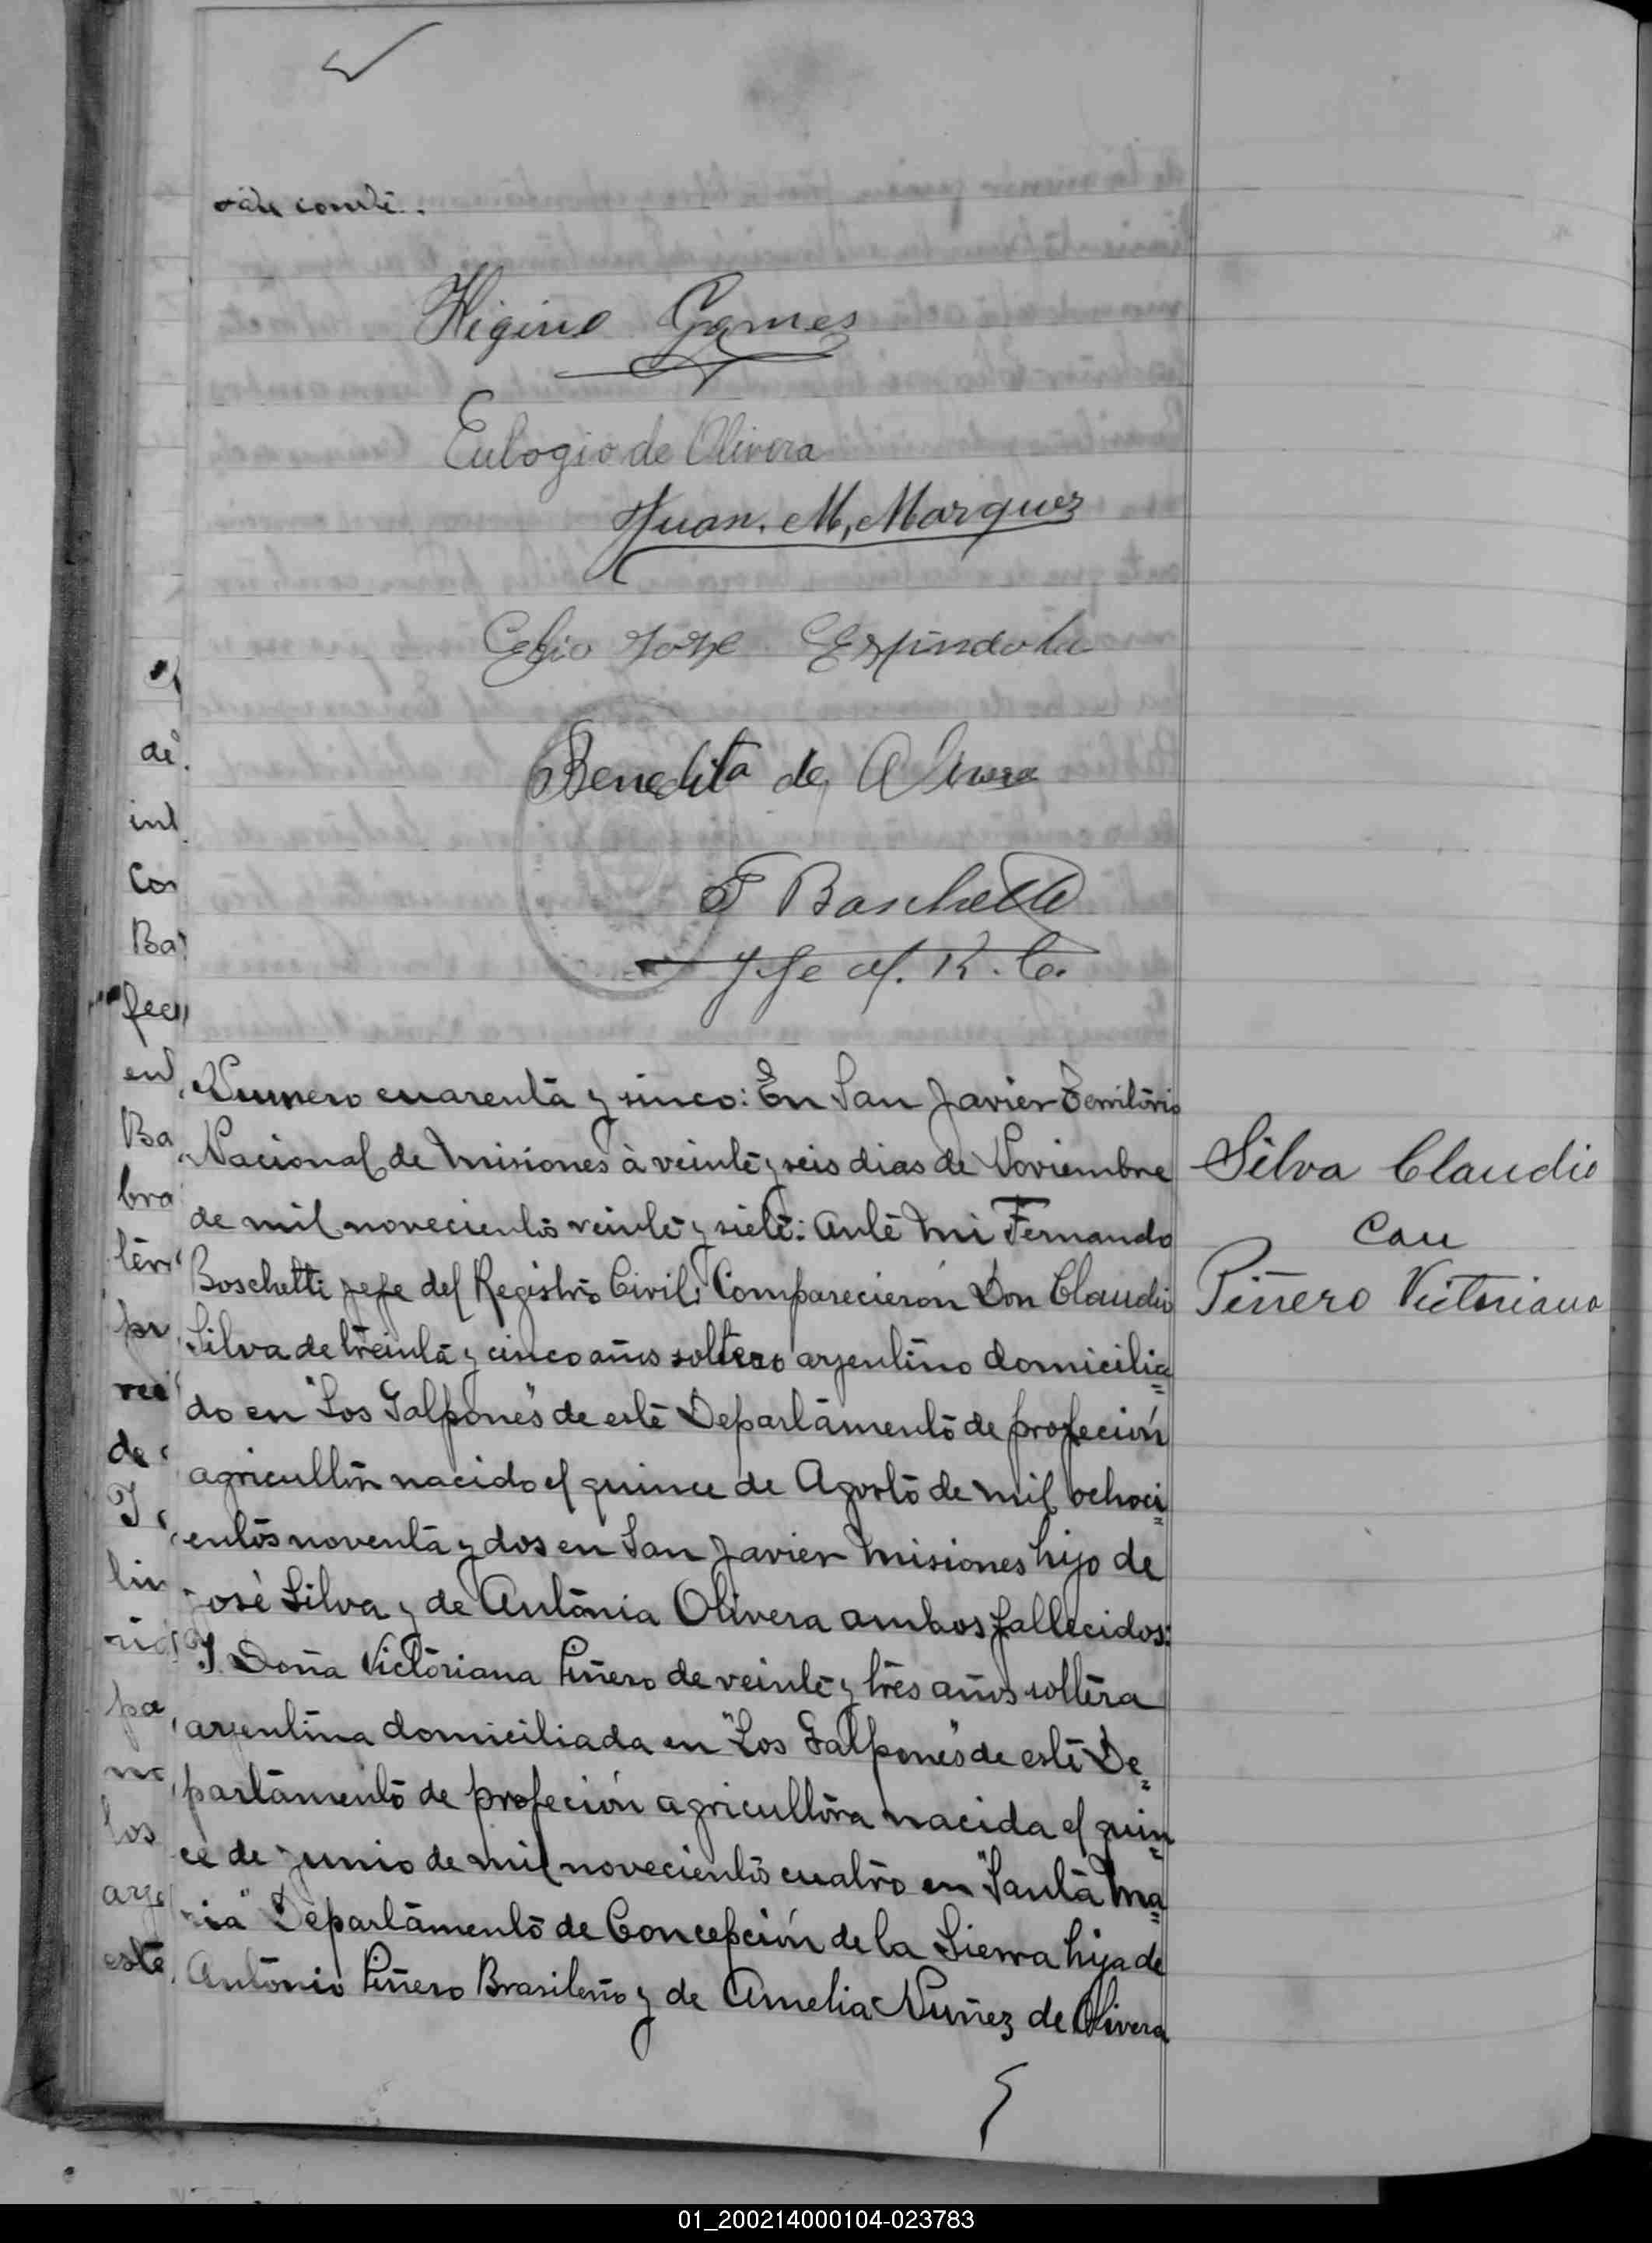 vale conste.
Higinio Gomes
Eulogio de Olivera
Juan. M, Marquez
José Espindola
Benedita de Olivera
F Boschetti
Jefe del. R. C.
Numero cuarenta y sinco: En San Javier Territorio
Nacional de Misiones à veinte y seis dias de Noviembre
de mil novecientos veinte y siete: Ante mi Fernando
Boschetti jefe del Registro Civil, Comparecierón Don Claudio
Silva de treinta y cinco años soltero argentino domicilia=
do en "Los Galpones" de este Departamento de profeción
agricultor nacido el quince de Agosto de mil ochoci=
entos noventa y dos en San Javier Misiones hijo de
José Silva y de Antonia Olivera ambos fallecidos:
Y Doña Victoriana Piñero de veinte y tres años soltera
argentina domiciliada en "Los Galpones" de este De=
partamento de profeción agricultora nacida el quin=
ce de junio de mil novecientos cuatro en "Santa Ma=
ria" Departamento de Concepción de la Sierra hija de
Antonio Piñero Brasileño y de Amelia Nuñez de Olivera
Silva Claudio
con
Piñero Victoriana
de
int
Con
Ba
fec
en
Ba
bra
ter
pr
vei
de
Y
lin
pa
no
los
arge
este
01_200214000104-023783